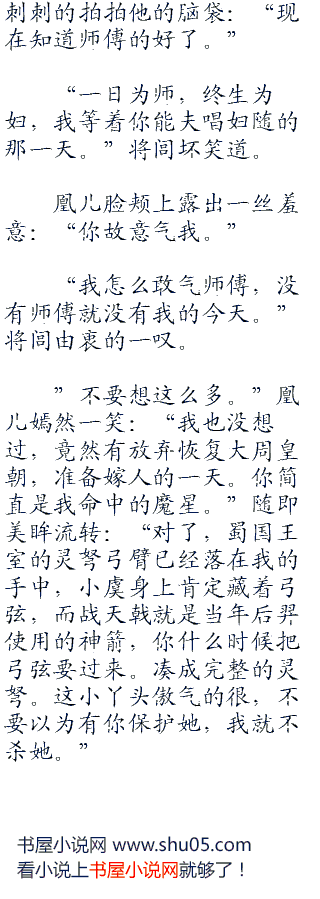 刺刺的拍拍他的脑袋：“现
在知道师傅的好了。”
“一日为师，终生为
妇，我等着你能夫唱妇随的
那一天。”将闾坏笑道。
凰儿脸颊上露出一丝羞
意：“你故意气我。”
“我怎么敢气师傅，没
有师傅就没有我的今天。”
将闾由衷的一叹。
”不要想这么多。”凰
儿嫣然一笑：“我也没想
过，竟然有放弃恢复大周皇
朝，准备嫁人的一天。你简
直是我命中的魔星。”随即
美眸流转：“对了，蜀国王
室的灵弩弓臂已经落在我的
手中，小虞身上肯定藏着弓
弦，而战天戟就是当年后羿
使用的神箭，你什么时候把
弓弦要过来。凑成完整的灵
弩。这小丫头傲气的很，不
要以为有你保护她，我就不
杀她。”
书屋小说网 www.shu05.com
看小说上书屋小说网就够了！